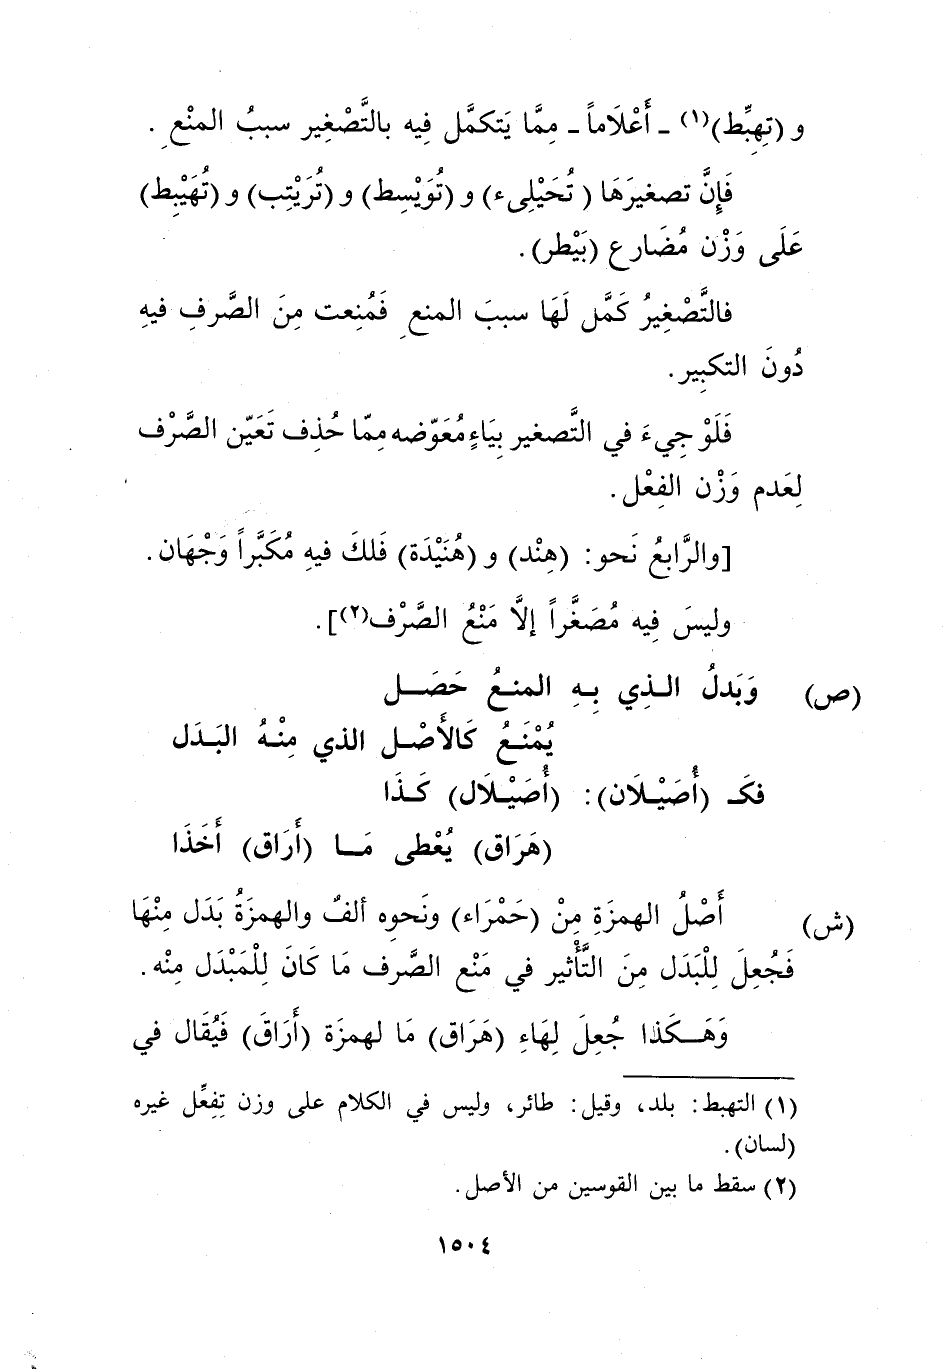 و (تِهِبِّط)(١) ـ أَعْلَاماً ـ مِمَّا يَتكمَّل فِيه بالتَّصْغِير سببُ المنْعِ .
فَإِنَّ تصغيرَهَا ( تُحَيْلِىء) و (تُوَيْسِط) و (تُرَيْتِب) و (تُهَيْبِط)
عَلَى وَزْن مُضَارع (بَيْطر).
فالتَّصْغِيرُ كَمَّل لَهَا سببَ المنعِ فَمُنِعت مِنَ الصَّرفِ فيهِ
دُونَ التكبِير.
فَلَوْ جِيءَ في التَّصغير بِيَاءٍ مُعَوّضه مِمّا حُذِف تَعَيّن الصَّرْف
لِعَدم وَزْن الفِعْل.
[والرَّابعُ نَحو: (هِنْد) و (هُنَيْدَة) فَلكَ فيهِ مُكَبَّراً وَجْهَان.
وليسَ فِيه مُصَغَّراً إلاَّ مَنْعُ الصَّرْف(٢)].
(ص) وَبَدلُ الـذِي بِـهِ المنـعُ حَصَــل
يُمْنَـعُ كَالأَصْـل الذي مِنْـهُ البَـدَل
فكَـ (أُصَيْـلَان): (أُصَيْـلَال) كَـذَا
(هَرَاق) يُعْطى مَــا (أَرَاق) أَخَذَا
(ش) أَصْلُ الهمزَةِ مِنْ (حَمْرَاء) ونَحوِه ألفٌ والهمزَةُ بَدَل مِنْهَا
فَجُعِلَ لِلْبَدَل مِنَ التَّأْثير في مَنْع الصَّرف مَا كَانَ لِلْمَبْدَل مِنْه.
وَهَــكَذا جُعِلَ لِهَاءِ (هَرَاق) مَا لهمزَة (أَرَاقَ) فَيُقَال في
(١) التهبط: بلد، وقيل: طائر، وليس في الكلام على وزن تِفِعِّل غيره
(لسان).
(٢) سقط ما بين القوسين من الأصل.
١٥٠٤